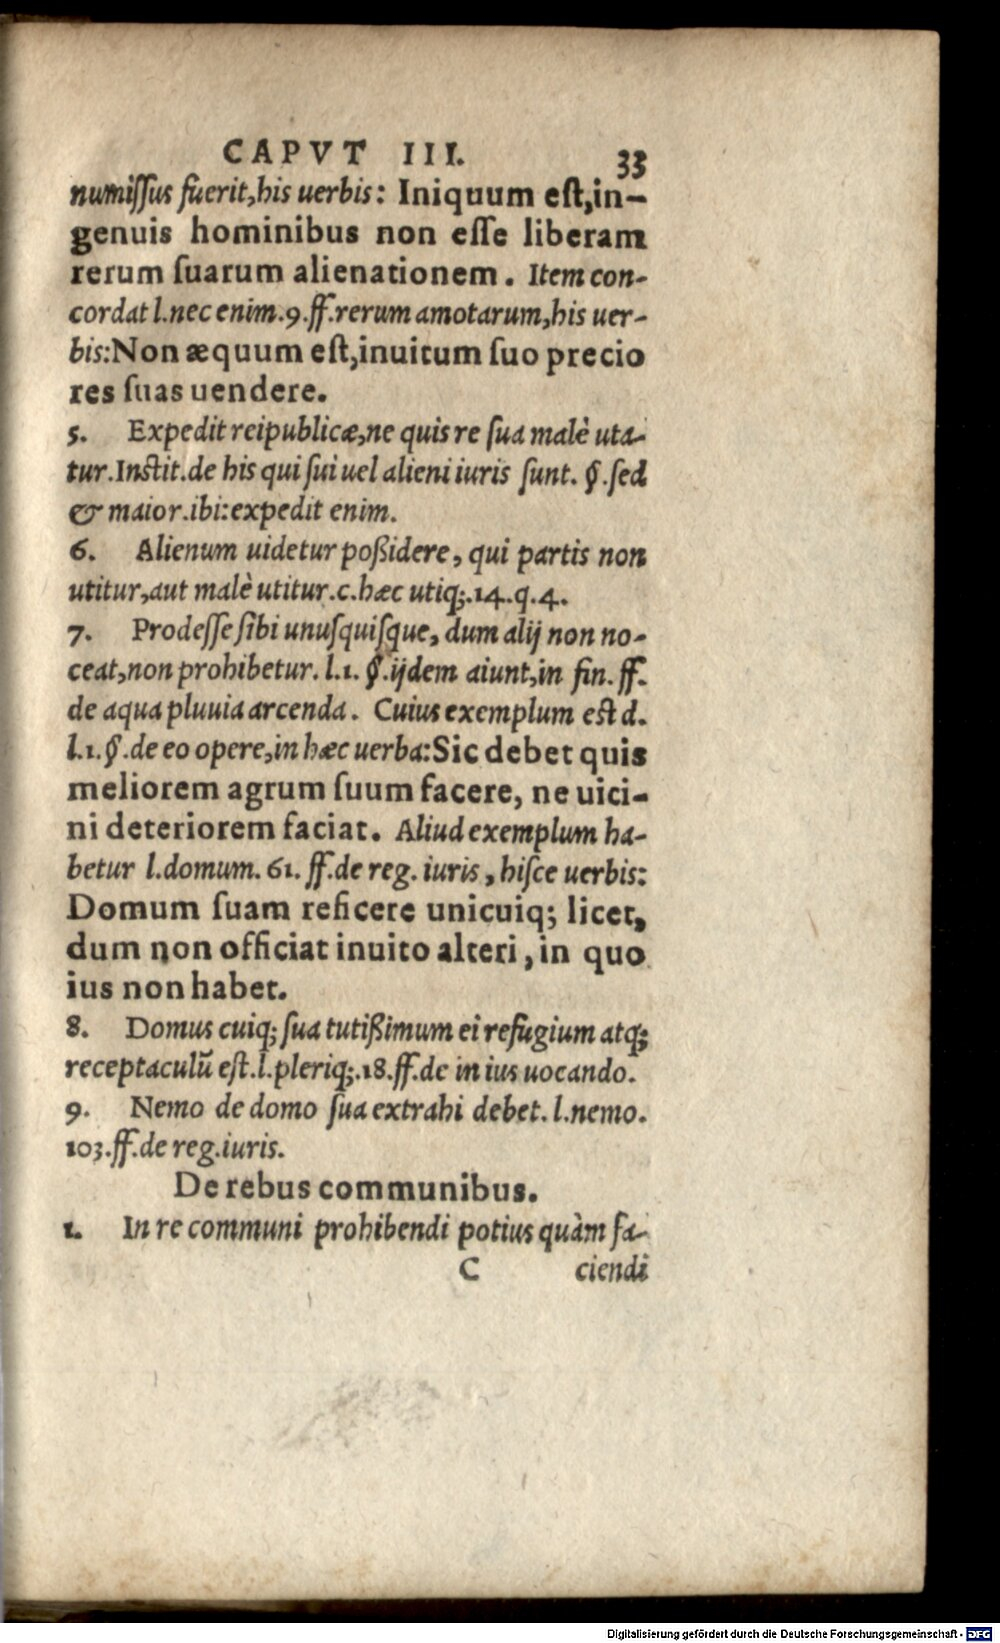 CAPVT III. 33
numiſſus fuerit,his uerbis: Iniquum eſt,in-
genuis hominibus non eſſe liberam
rerum ſuarum alienationem. Item con-
cordat l.nec enim.9.ff.rerum amotarum,his uer-
bis:Non æquum eſt,inuitum ſuo precio
res ſuas uendere.
5. Expedit reipublicæ,ne quis re ſua malè uta-
tur.Inſtit.de his qui ſui uel alieni iuris ſunt. §.ſed
& maior.ibi:expedit enim.
6. Alienum uidetur poßidere, qui partis non
utitur,aut malè utitur.c.hæc utiq;.14.q.4.
7. Prodeſſe ſibi unuſquiſque, dum alij non no-
ceat,non prohibetur. l.1. §.ijdem aiunt,in fin. ff.
de aqua pluuia arcenda. Cuius exemplum eſt d.
l.1.§.de eo opere,in hæc uerba:Sic debet quis
meliorem agrum ſuum facere, ne uici-
ni deteriorem faciat. Aliud exemplum ha-
betur l.domum. 61. ff.de reg. iuris, hiſce uerbis:
Domum ſuam reficere unicuiq; licet,
dum non officiat inuito alteri, in quo
ius non habet.
8. Domus cuiq; ſua tutißimum ei refugium atq;
receptaculũ eſt.l.pleriq;.18.ff.de in ius uocando.
9. Nemo de domo ſua extrahi debet. l.nemo.
103.ff.de reg.iuris.
De rebus communibus.
1. In re communi prohibendi potius quàm fa-
C ciendi
Digitalisierung gefördert durch die Deutsche Forschungsgemeinschaft - DFG